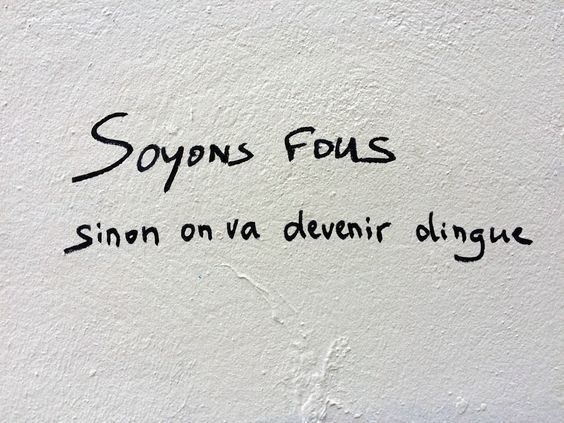 Soyons fous
sinon on va devenir dingue